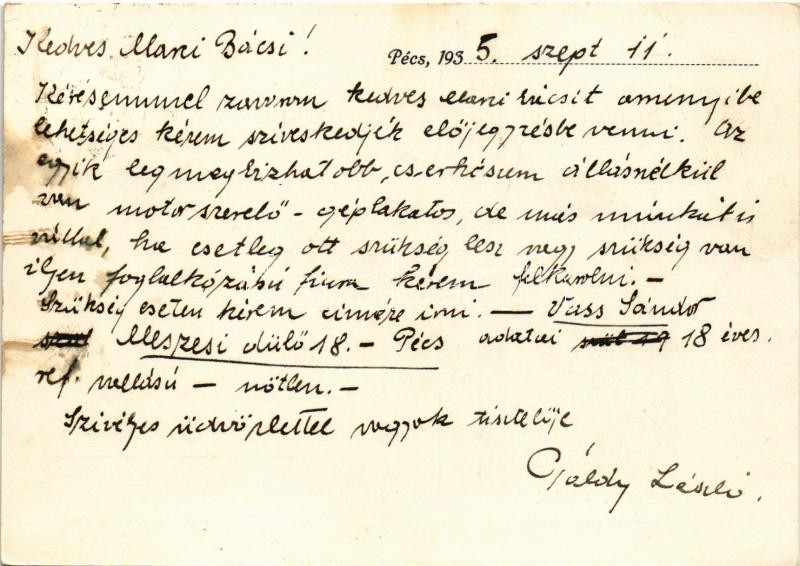 Kedves Marci Bácsi!
Pécs, 1935. szept 11.
Kérésemmel zavarom kedves Marci bácsit amenyibe
lehetséges kérem sziveskedjék előjegyzésbe venni. Az
egyik legmegbizhatobb, cserkészem állásnélkül
van motorszerelő - géplakatos, de más munkát is
vállal, ha esetleg ott szükség lesz vagy szükség van
iljen foglalkózású fiura kérem felkarolni. -
Szükség eseten kérem cimére irni. — Vass Sándor
Meszesi dülő 18. - Pécs adatai szül 19 18 éves.
ref. vallású - nőtlen. -
Szivéjes üdvözlettel vagyok tisztelője
Gáldy László.